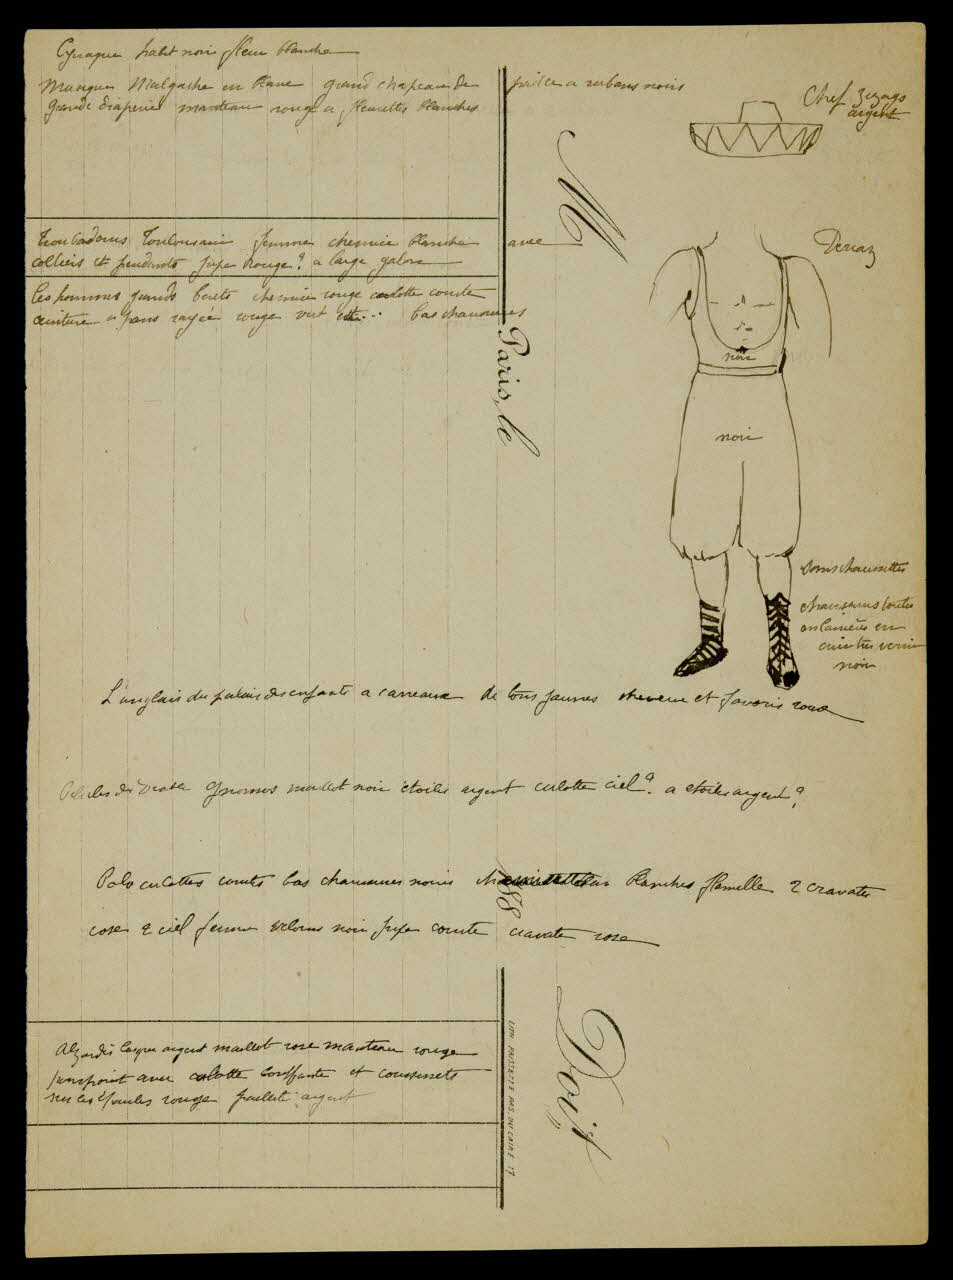 habit noir fleur blanche
Malgache en blanc grand chapeau de paille a rubans noirs
grande draperie manteau rouge a fleurettes blanches
Chef zigzags
argent
M
Troubadours Toulousains femme chemise blanche avec
colliers et pendants jupe rouge? a large galon
Dervaz
les hommes grands berets chemise rouge culotte courte
ceinture a pans rayée rouge vert bas chaussures
Paris, le
noir
noir
sans chaussettes
chaussures toutes
en lanières en
cuir tres verni
noir
L'anglais du palais des enfants a carreaux de tons jaunes cheveux et favoris roux
Gnomes maillot noir étoiles argent culotte ciel? a etoiles argent?
Polo culottes courtes bas chaussures noires blanches flanelle 2 cravates
188
rose 2 ciel femme velours noir jupe courte cravate rose
casque argent maillot rose manteau rouge
pourpoint avec culotte bouffante et coussinets
sur les épaules rouge pailleté argent
Doit
LITH. PAS. DU CAIRE 17.